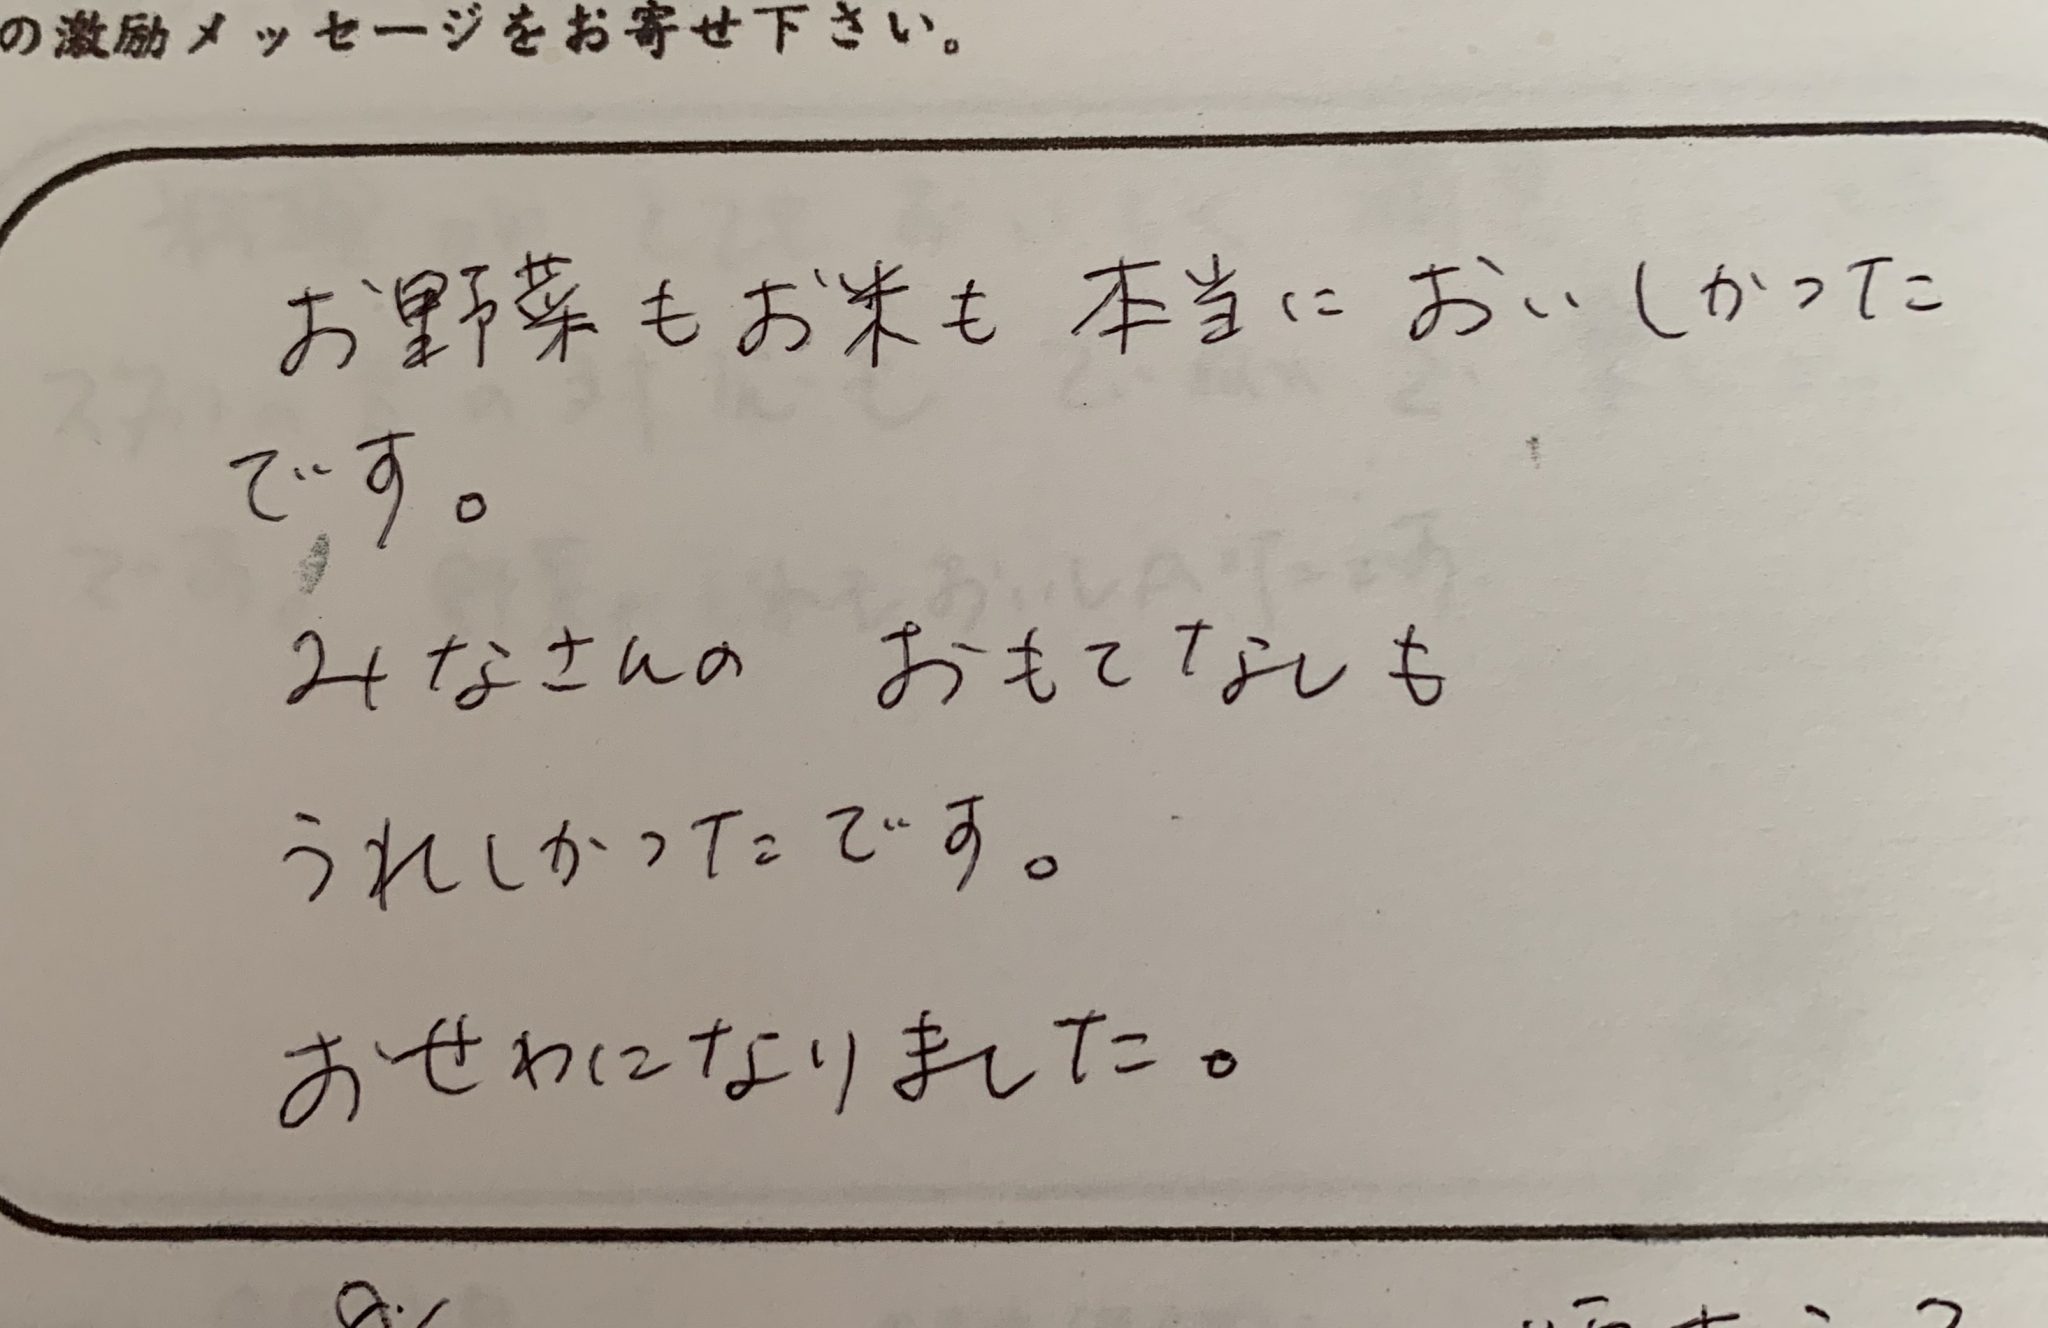 の激励メッセージをお寄せ下さい。
お野菜もお米も本当においしかった
です。
みなさんの おもてなしも
うれしかったです。
おせわになりました。